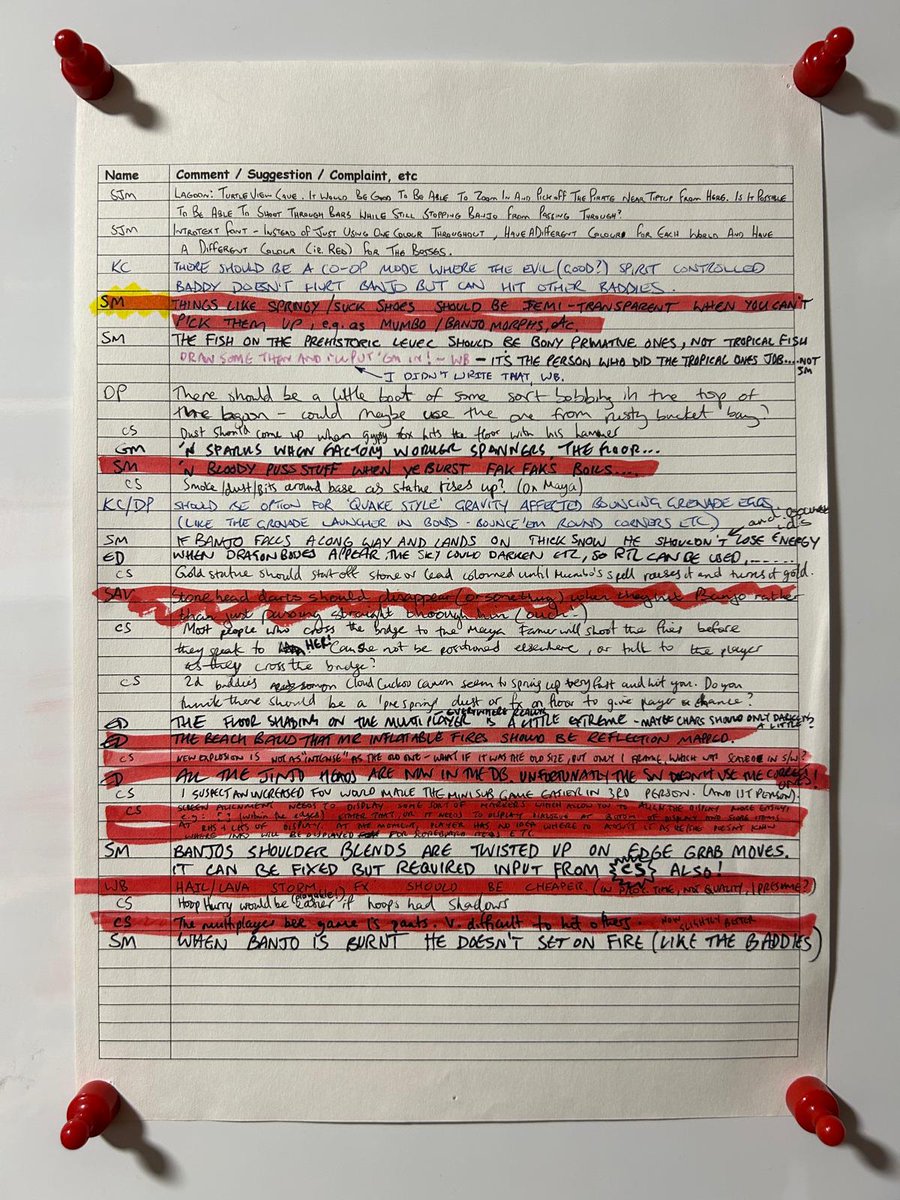 Name Comment / Suggestion / Complaint, etc
SJM LAGOON: TURTLE VIEW CAVE. IT WOULD BE GOOD TO BE ABLE TO ZOOM IN AND PICK OFF THE PIRATE NEAR TIPTUP FROM HERE. IS IT POSSIBLE
TO BE ABLE TO SHOOT THROUGH BARS WHILE STILL STOPPING BANJO FROM PASSING THROUGH?
SJM INTROTEXT FONT - INSTEAD OF JUST USING ONE COLOUR THROUGHOUT, HAVE A DIFFERENT COLOUR FOR EACH WORLD AND HAVE
A DIFFERENT COLOUR (i.e. RED) FOR THE BOSSES.
KC THERE SHOULD BE A CO-OP MODE WHERE THE EVIL (GOOD?) SPIRIT CONTROLLED
BADDY DOESN'T HURT BANJO BUT CAN HIT OTHER BADDIES.
SM THINGS LIKE SPRINGY/SUCK SHOES SHOULD BE SEMI-TRANSPARENT WHEN YOU CAN'T
PICK THEM UP, e.g. as MUMBO/BANJO MORPHS, etc.
SM THE FISH ON THE PREHISTORIC LEVEL SHOULD BE BONY PRIMATIVE ONES, NOT TROPICAL FISH
DRAW SOME THAN AND I'LL PUT 'EM IN! - WB - IT'S THE PERSON WHO DID THE TROPICAL ONES JOB.... NOT SM
I DIDN'T WRITE THAT, WB.
DP There should be a little boat of some sort bobbing in the top of
the lagoon - could maybe use the one from rusty bucket bay?
CS Dust should come up when gypy fox hits the floor with his hammer
GM 'N SPARKS WHEN FACTORY WORKER SPANNERS THE FLOOR...
SM 'N BLOODY PUSS STUFF WHEN YE BURST FAK FAK'S BOILS....
CS Smoke/dust/bits around base as statue rises up? (on Maya)
KC/DP SHOULD BE OPTION FOR 'QUAKE STYLE' GRAVITY AFFECTED BOUNCING GRENADE EGGS
(LIKE THE GRENADE LAUNCHER IN BOND - BOUNCE 'EM ROUND CORNERS ETC)
SM IF BANJO FALLS A LONG WAY AND LANDS ON THICK SNOW HE SHOULDN'T LOSE ENERGY
ED WHEN DRAGON BONES APPEAR THE SKY COULD DARKEN ETC, SO RTL CAN BE USED.......
CS Gold statue should start off stone or lead coloured until Mumbo's spell raises it and turns it gold.
SAV Stone head darts should disappear (or something) when they hit Banjo rather
than just passing straight through him (ouch!)
CS Most people who cross the bridge to the Maya Farmer will shoot the flies before
they speak to HER! Can she not be positioned elsewhere, or talk to the player
as they cross the bridge?
CS 2d baddies in Cloud Cuckoo cavern seem to spring up very fast and hit you. Do you
think there should be a 'pre spring' dust or fx on floor to give player a chance?
ED THE FLOOR SHADING ON THE MULTIPLAYER IS A LITTLE EXTREME - MAYBE CHARS SHOULD ONLY DARKEN A LITTLE?
EVERYWHERE REALLY
ED THE BEACH BALLS THAT MR INFLATABLE FIRES SHOULD BE REFLECTION MAPPED.
CS NEW EXPLOSION IS NOT AS "INTENSE" AS THE OLD ONE - WHAT IF IT WAS THE OLD SIZE, BUT ONLY 1 FRAME, WHICH WAS SCALED IN S/W?
ED ALL THE JINJO HEADS ARE NOW IN THE DB. UNFORTUNATELY THE SW DOESN'T USE THE CORRECT ONES!
CS I SUSPECT AN INCREASED FOV WOULD MAKE THE MINI SUB GAME EASIER IN 3RD PERSON. (AND 1ST PERSON).
CS SCREEN ALIGNMENT NEEDS TO DISPLAY SOME SORT OF MARKERS WHICH ALLOW YOU TO ALIGN THE DISPLAY MORE EASILY
e.g: (within the edges) EITHER THAT, OR IT NEEDS TO DISPLAY DIALOGUE AT BOTTOM OF DISPLAY AND SOME ITEMS
AT RHS & LHS OF DISPLAY. AT THE MOMENT, PLAYER HAS NO IDEA WHERE TO ADJUST IT AS HE/SHE DOESN'T KNOW
WHERE INFO WILL BE DISPLAYED FOR SCOREBOARD ITEMS ETC
SM BANJOS SHOULDER BLENDS ARE TWISTED UP ON EDGE GRAB MOVES.
IT CAN BE FIXED BUT REQUIRED INPUT FROM CS ALSO!
WB HAIL/LAVA STORM FX SHOULD BE CHEAPER. (IN PROC. TIME, NOT QUALITY, I PRESUME?)
CS Hoop Hurry would be easier if hoops had shadows
(playable!)
CS The multiplayer bee game is pants. V. difficult to hit others. - NOW SLIGHTLY BETTER
SM WHEN BANJO IS BURNT HE DOESN'T SET ON FIRE (LIKE THE BADDIES)